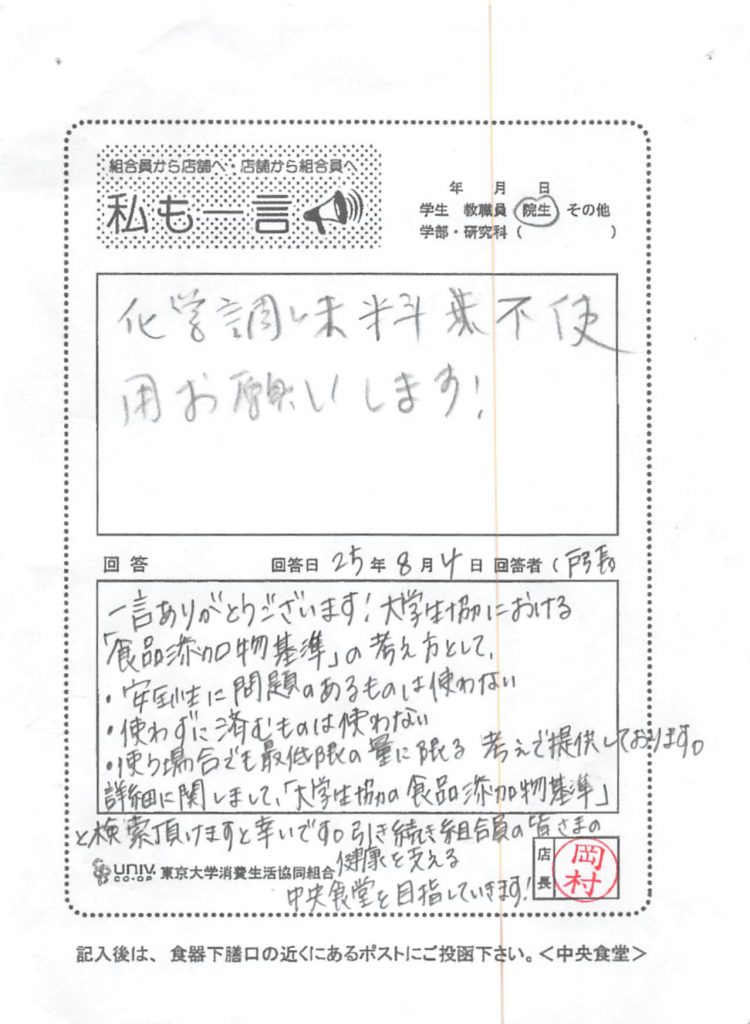 組合員から店舗へ・店舗から組合員へ
私も一言
年 月 日
学生 教職員 院生 その他
学部・研究科( )
化学調味料業不使
用お願いします!
回答 回答日 25年 8月 4日 回答者(店長
一言ありがとうございます!大学生協における
「食品添加物基準」の考え方として、
・安全性に問題のあるものは使わない
・使わずに済むものは使わない
・使う場合でも最低限の量に限る 考えで提供しております。
詳細に関しまして、「大学生協の食品添加物基準」
と検索頂けますと幸いです。引き続き組合員の皆さまの
健康を支える
中央食堂を目指していきます!
UNIV. CO-OP 東京大学消費生活協同組合
店長 岡村
記入後は、食器下膳口の近くにあるポストにご投函下さい。<中央食堂>